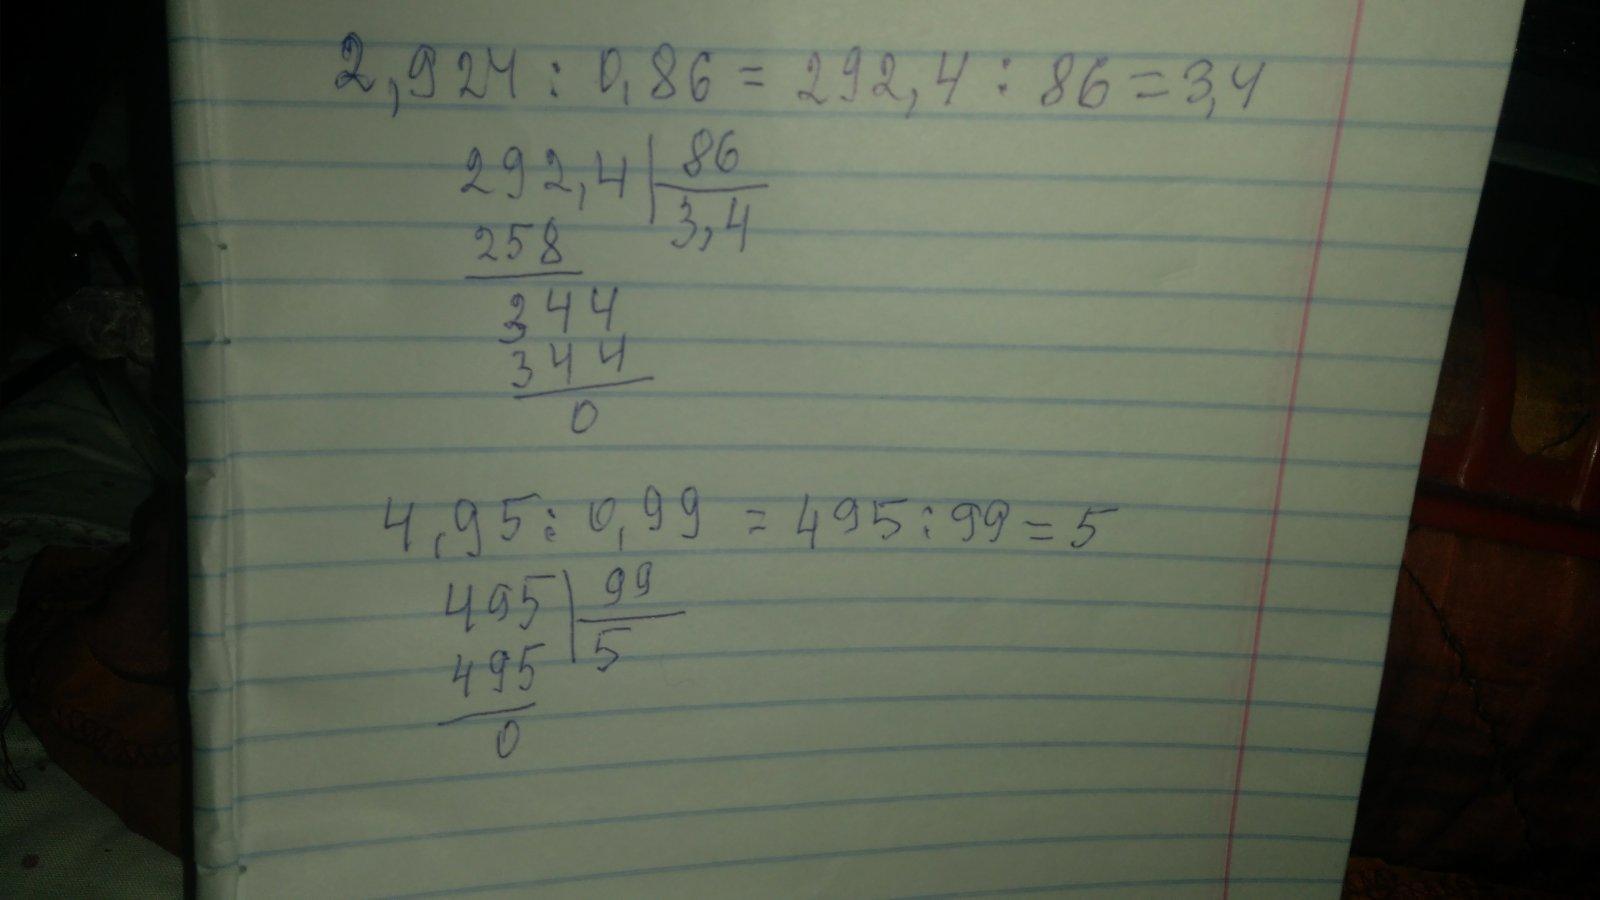 2,924 : 0,86 = 292,4 : 86 = 3,4
292,4 | 86
258 3,4
344
344
0
4,95 : 0,99 = 495 : 99 = 5
495 | 99
495 5
0